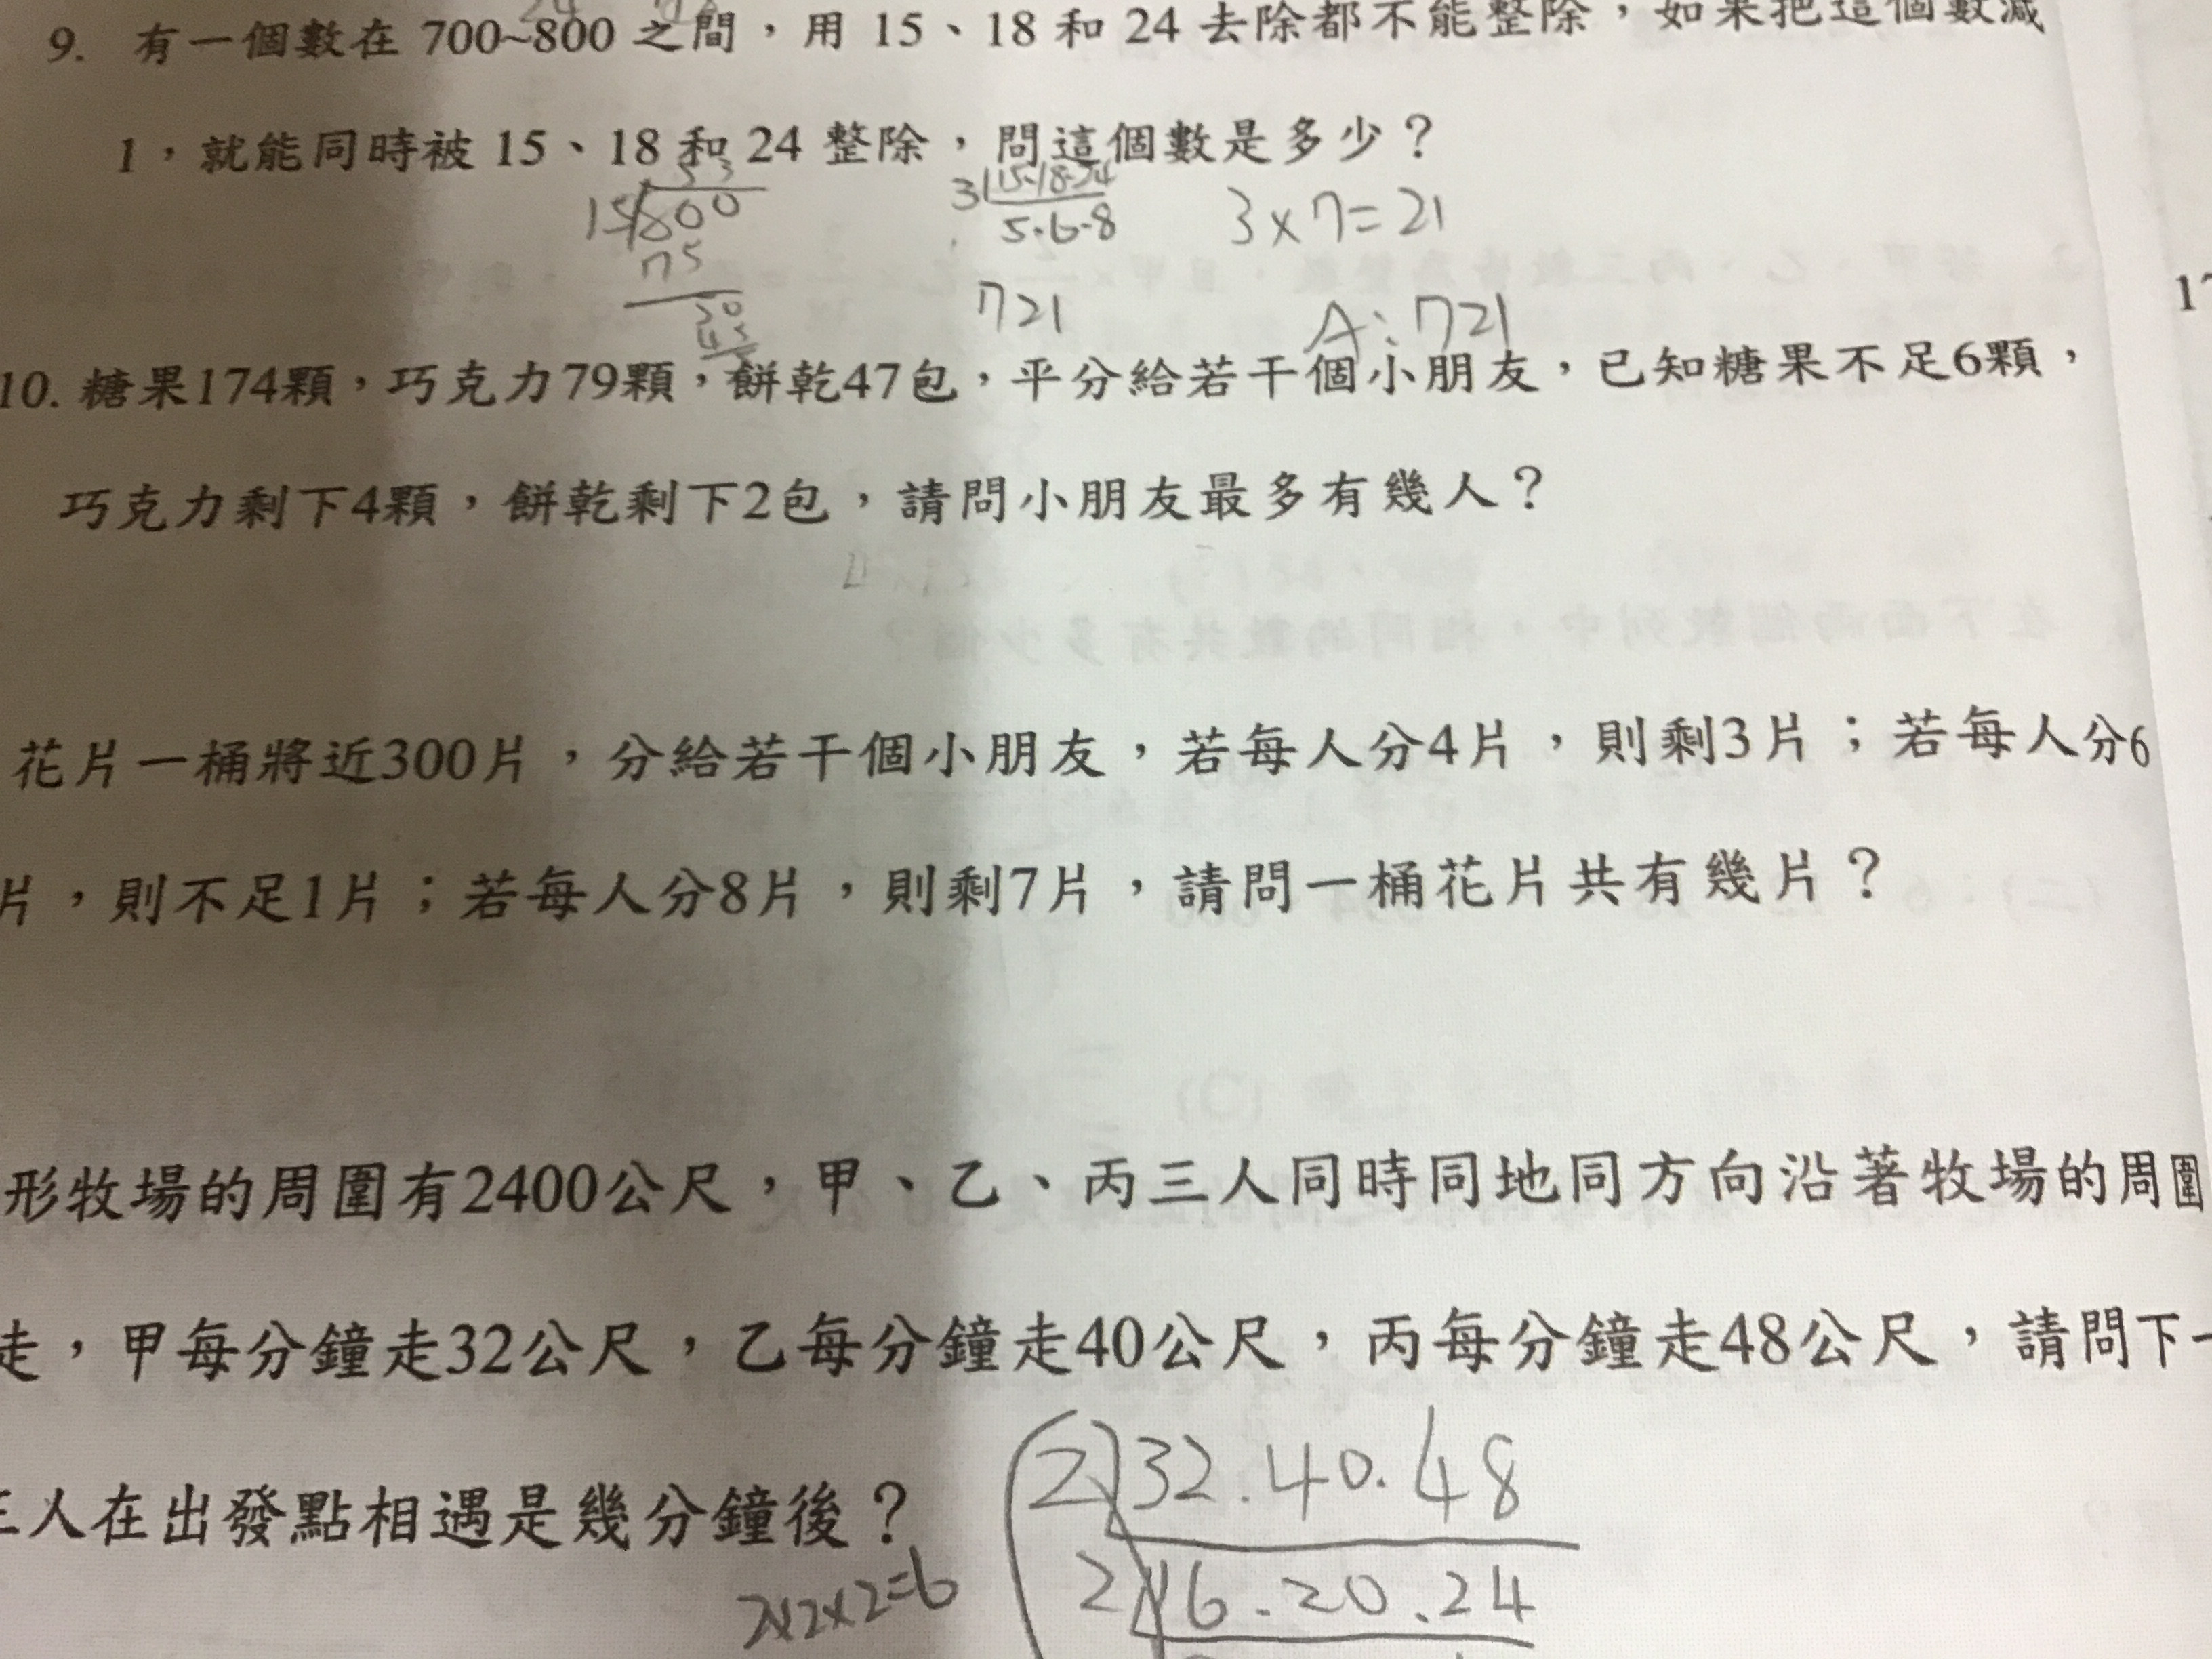 9. 有一個數在 700~800 之間，用 15、18 和 24 去除都不能整除，如果把這個數減
1，就能同時被 15、18 和 24 整除，問這個數是多少？
53
15 800
75
50
45
3 15.18.24
5.6.8
3×7=21
721
A:721
10. 糖果174顆，巧克力79顆，餅乾47包，平分給若干個小朋友，已知糖果不足6顆，
巧克力剩下4顆，餅乾剩下2包，請問小朋友最多有幾人？
花片一桶將近300片，分給若干個小朋友，若每人分4片，則剩3片；若每人分6
片，則不足1片；若每人分8片，則剩7片，請問一桶花片共有幾片？
形牧場的周圍有2400公尺，甲、乙、丙三人同時同地同方向沿著牧場的周圍
走，甲每分鐘走32公尺，乙每分鐘走40公尺，丙每分鐘走48公尺，請問下一
三人在出發點相遇是幾分鐘後？
2×2×2=6
2 32.40.48
2 16.20.24